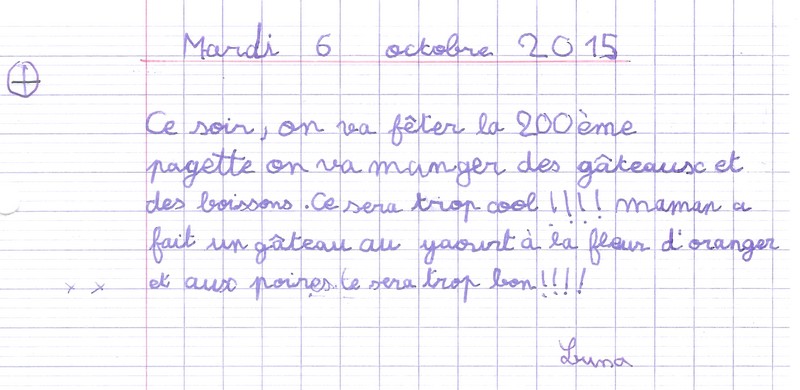 Mardi 6 octobre 2015
Ce soir, on va fêter la 200ème
pagette on va manger des gâteaux et
des boissons. Ce sera trop cool !!!! maman a
fait un gâteau au yaourt à la fleur d'oranger
et aux poires. Ce sera trop bon!!!!
Luna